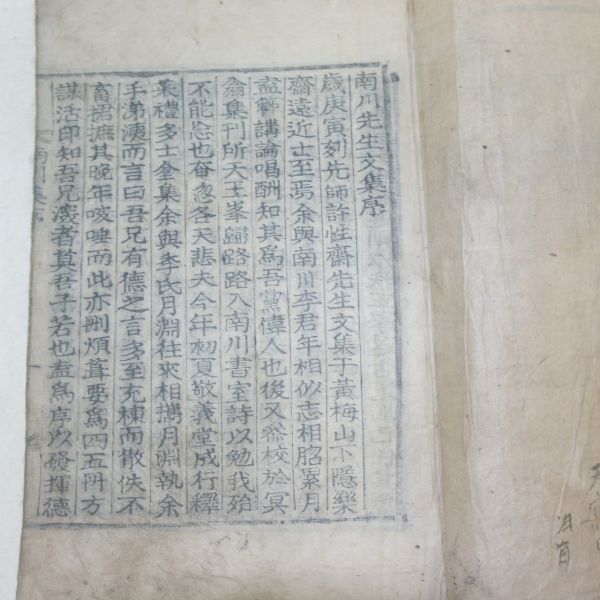 南川先生文集序
歲庚寅刻先師許性齋先生文集于黃梅山下隱樂
齋遠近士至焉余與南川李君年相似志相照累月
盍簪講論唱酬知其爲吾黨偉人也後又叅校於冥
翁集刊所天王峯歸路路入南川書室詩以勉我殆
不能忘也奋忽各天悲夫今年初夏敬義堂成行釋
菜禮多士全集余與李氏月淵往來相攜月淵執余
手涕洟而言曰吾兄有德之言多至充棟而散佚不
裔攟摭其晚年咳唾而此亦刪煩葺要爲四五冊方
謀活印知吾兄淺者莫吾子若也盍爲序以發揮德
南川集序